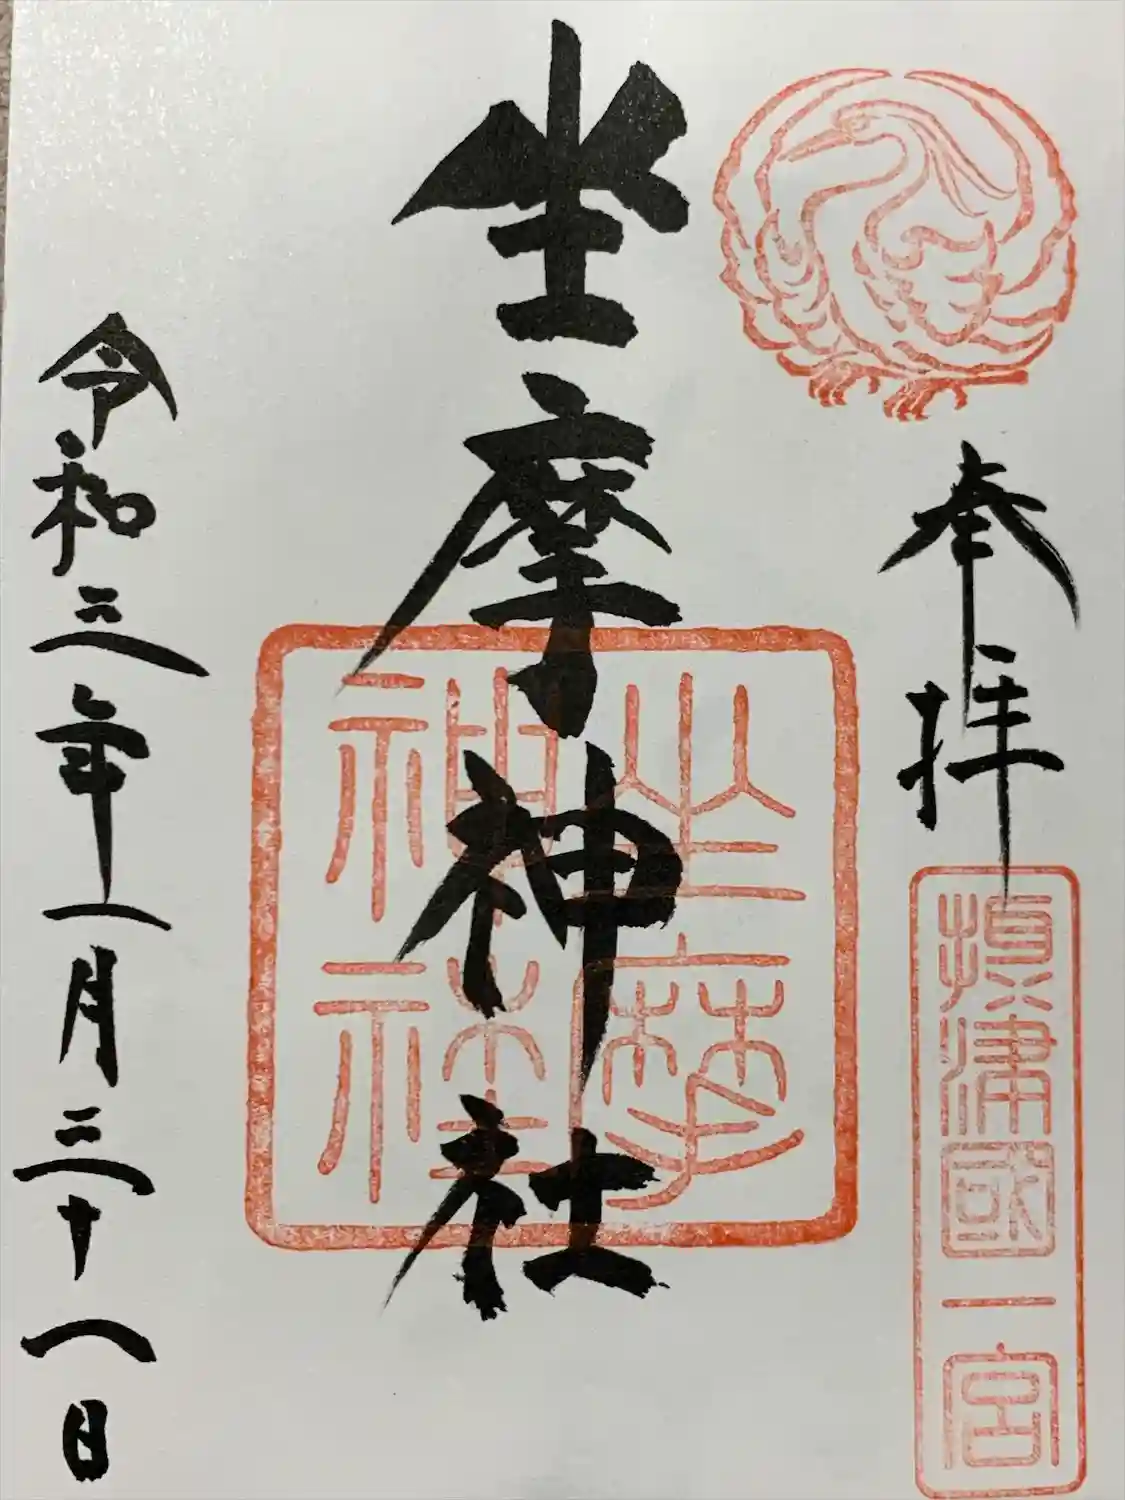 奉拝
攝津國一宮
坐摩神社
坐摩
神社
令和三年一月三十一日